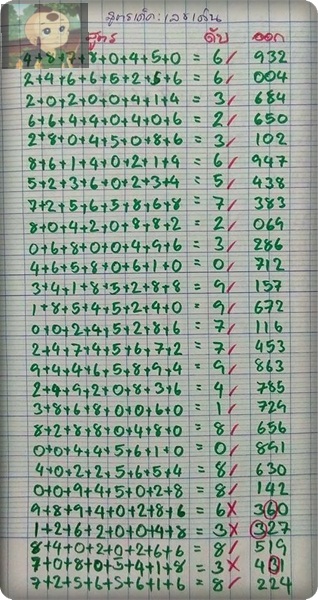 สูตรเด็ด: เลขเด่น
สูตร ดับ ออก
4+8+7+8+0+4+5+0 = 6/ 932
2+4+6+6+5+2+5+6 = 6/ 004
2+0+2+0+0+4+1+4 = 3/ 684
6+6+4+4+0+4+0+6 = 2/ 650
2+8+0+4+5+0+8+6 = 3/ 102
8+6+1+4+0+2+1+4 = 6/ 947
5+2+3+6+0+2+3+4 = 5/ 438
7+2+5+6+5+8+6+8 = 7/ 383
8+0+4+2+0+8+8+2 = 2/ 069
0+6+8+0+0+4+9+6 = 3/ 286
4+6+5+8+0+6+1+0 = 0/ 712
3+4+1+8+5+2+8+8 = 9/ 157
1+8+5+4+5+2+4+0 = 9/ 672
0+0+2+4+5+2+8+6 = 7/ 116
2+4+7+4+5+6+7+2 = 7/ 453
9+4+4+6+5+8+9+4 = 9/ 863
2+4+9+2+0+8+3+6 = 4/ 785
3+8+6+8+0+0+6+0 = 1/ 729
8+2+8+8+0+4+8+0 = 8/ 656
0+0+4+4+5+6+1+0 = 0/ 891
4+0+2+2+5+6+5+4 = 8/ 630
0+0+9+4+5+0+2+8 = 8/ 142
9+8+9+4+0+2+8+6 = 6X 360
1+2+6+2+0+0+4+8 = 3X 327
8+4+0+2+0+2+6+6 = 8/ 519
7+0+8+0+5+4+1+8 = 3X 431
7+2+5+6+5+6+1+6 = 8/ 224